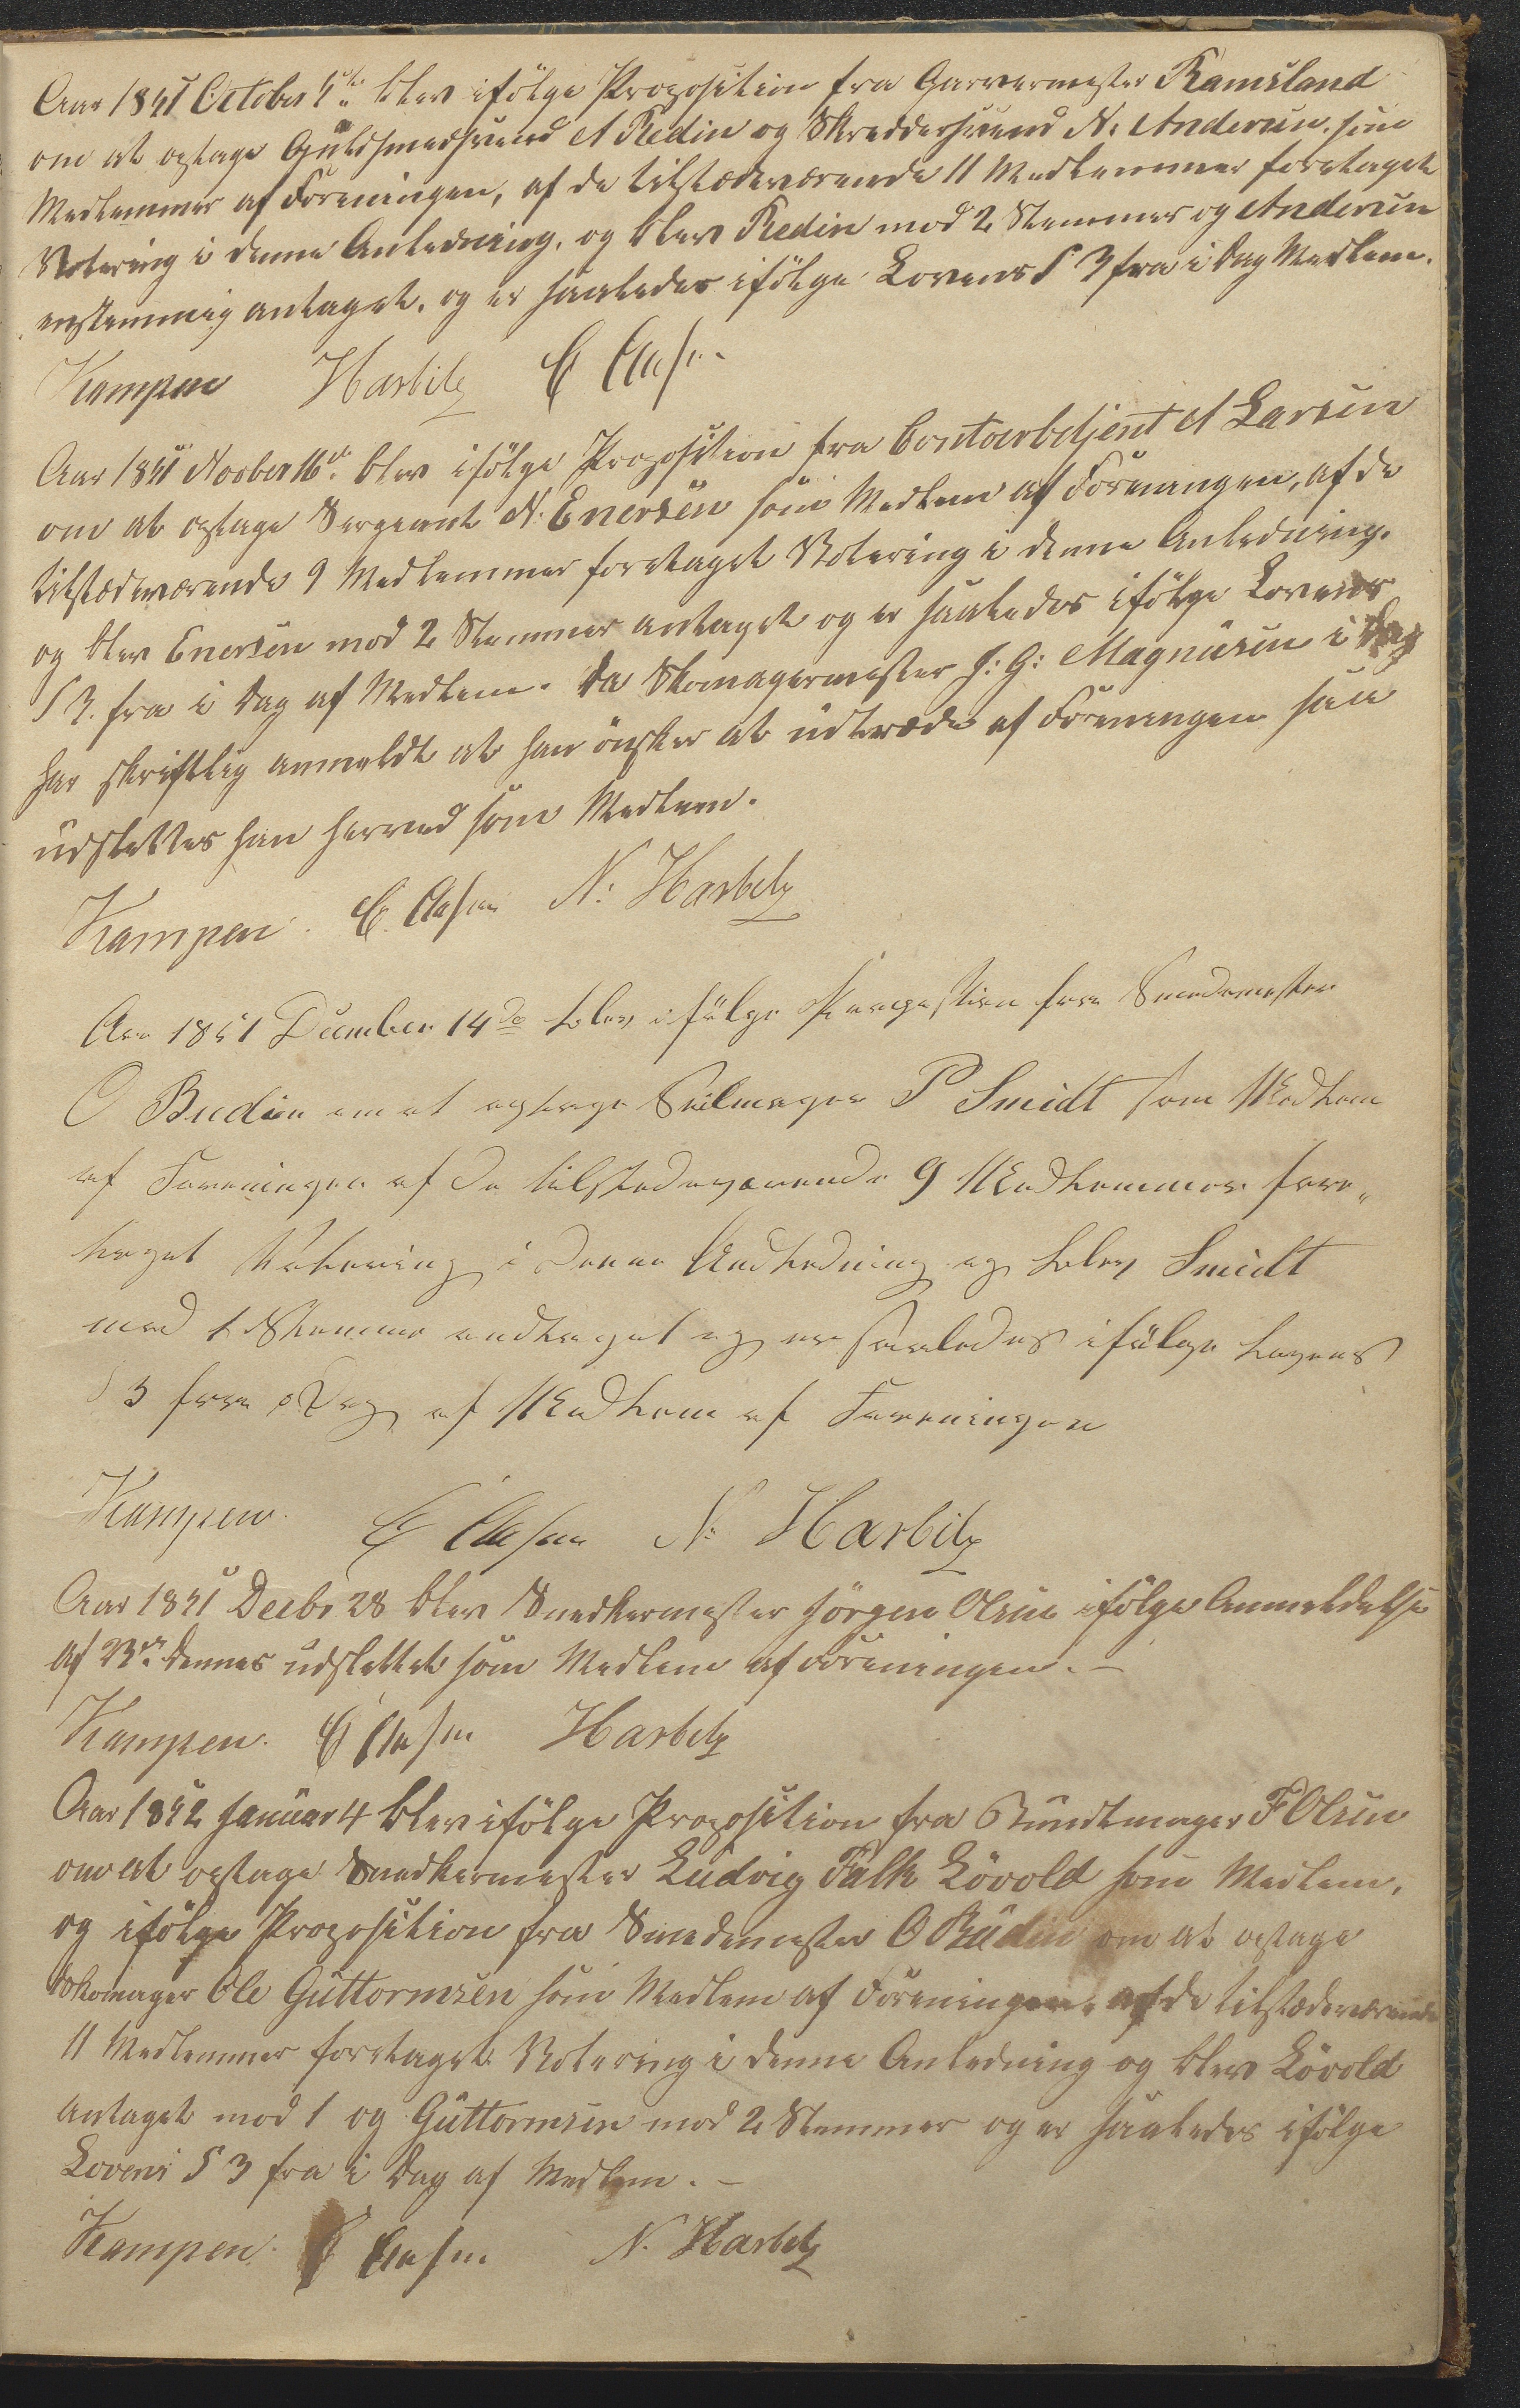 Aar 1851 October 5te blev ifölge Proposition fra Garvermester Ramsland
om at optage Guldsmedsvend A Redin og Skreddersvend N. Andersen som
Medlemmer af Foreningen, af de tilstædeværende 11 Medlemmer foretaget
Votering i denne Anledning, og blev Redin mod 2 Stemmer og Andersen
enstemmig antaget, og er saaledes ifölge Lovens § 3 fra i Dag Medlem.
Kampen Harbitz E Clasen
Aar 1851 Novber 16de blev ifölge Proposition fra Contoirbetjent A Larsen
om at optage Sergeant N. Enersen som Medlem af Foreningen, af de
tilstædeværende 9 Medlemmer foretaget Votering i denne Anledning.
og blev Enersen mod 2 Stemmer antaget og er saaledes ifölge Lovens
§ 3. fra i Dag af Medlem. Da Skomagermester J: G: Magnusen i Dag
har skriftlig anmeldt at han önsker at udtræde af Foreningen saa
udslettes han herved som Medlem.
Kampen. E. Clasen N: Harbitz
Aar 1851 December 14de blev ifölge Proposition fra Smedemester
O Budin om at optage Seilmager P Smidt som Medlem
af Foreningen af de tilstedeværende 9 Medlemmer fore„
taget Votering i denne Andledning og blev Smidt
med 1 Stemme andtaget og er saaledes ifölge Lovens
§ 3 fra i Dag af Medlem af Foreningen
Kampen. E Clasen N. Harbitz
Aar 1851 Decbr 28 blev Snedkermester Jörgen Olsen ifölge Anmeldelse
af 23de dennes udslettet som Medlem af Foreningen. —
Kampen. E Clasen Harbitz
Aar 1852 Januar 4 blev ifölge Proposition fra Bundtmager F Olsen
om at optage Snedkermester Ludvig Falk Lövold som Medlem,
og ifölge Proposition fra Smedemester O Budin om at optage
Skomager Ole Guttormsen som Medlem af Foreningen, af de tilstædeværende
11 Medlemmer foretaget Votering i denne Anledning og blev Lövold
antaget mod 1 og Guttormsen mod 2 Stemmer og er saaledes ifölge
Lovens § 3 fra i Dag af Medlem. —
Kampen. E Clasen N. Harbitz